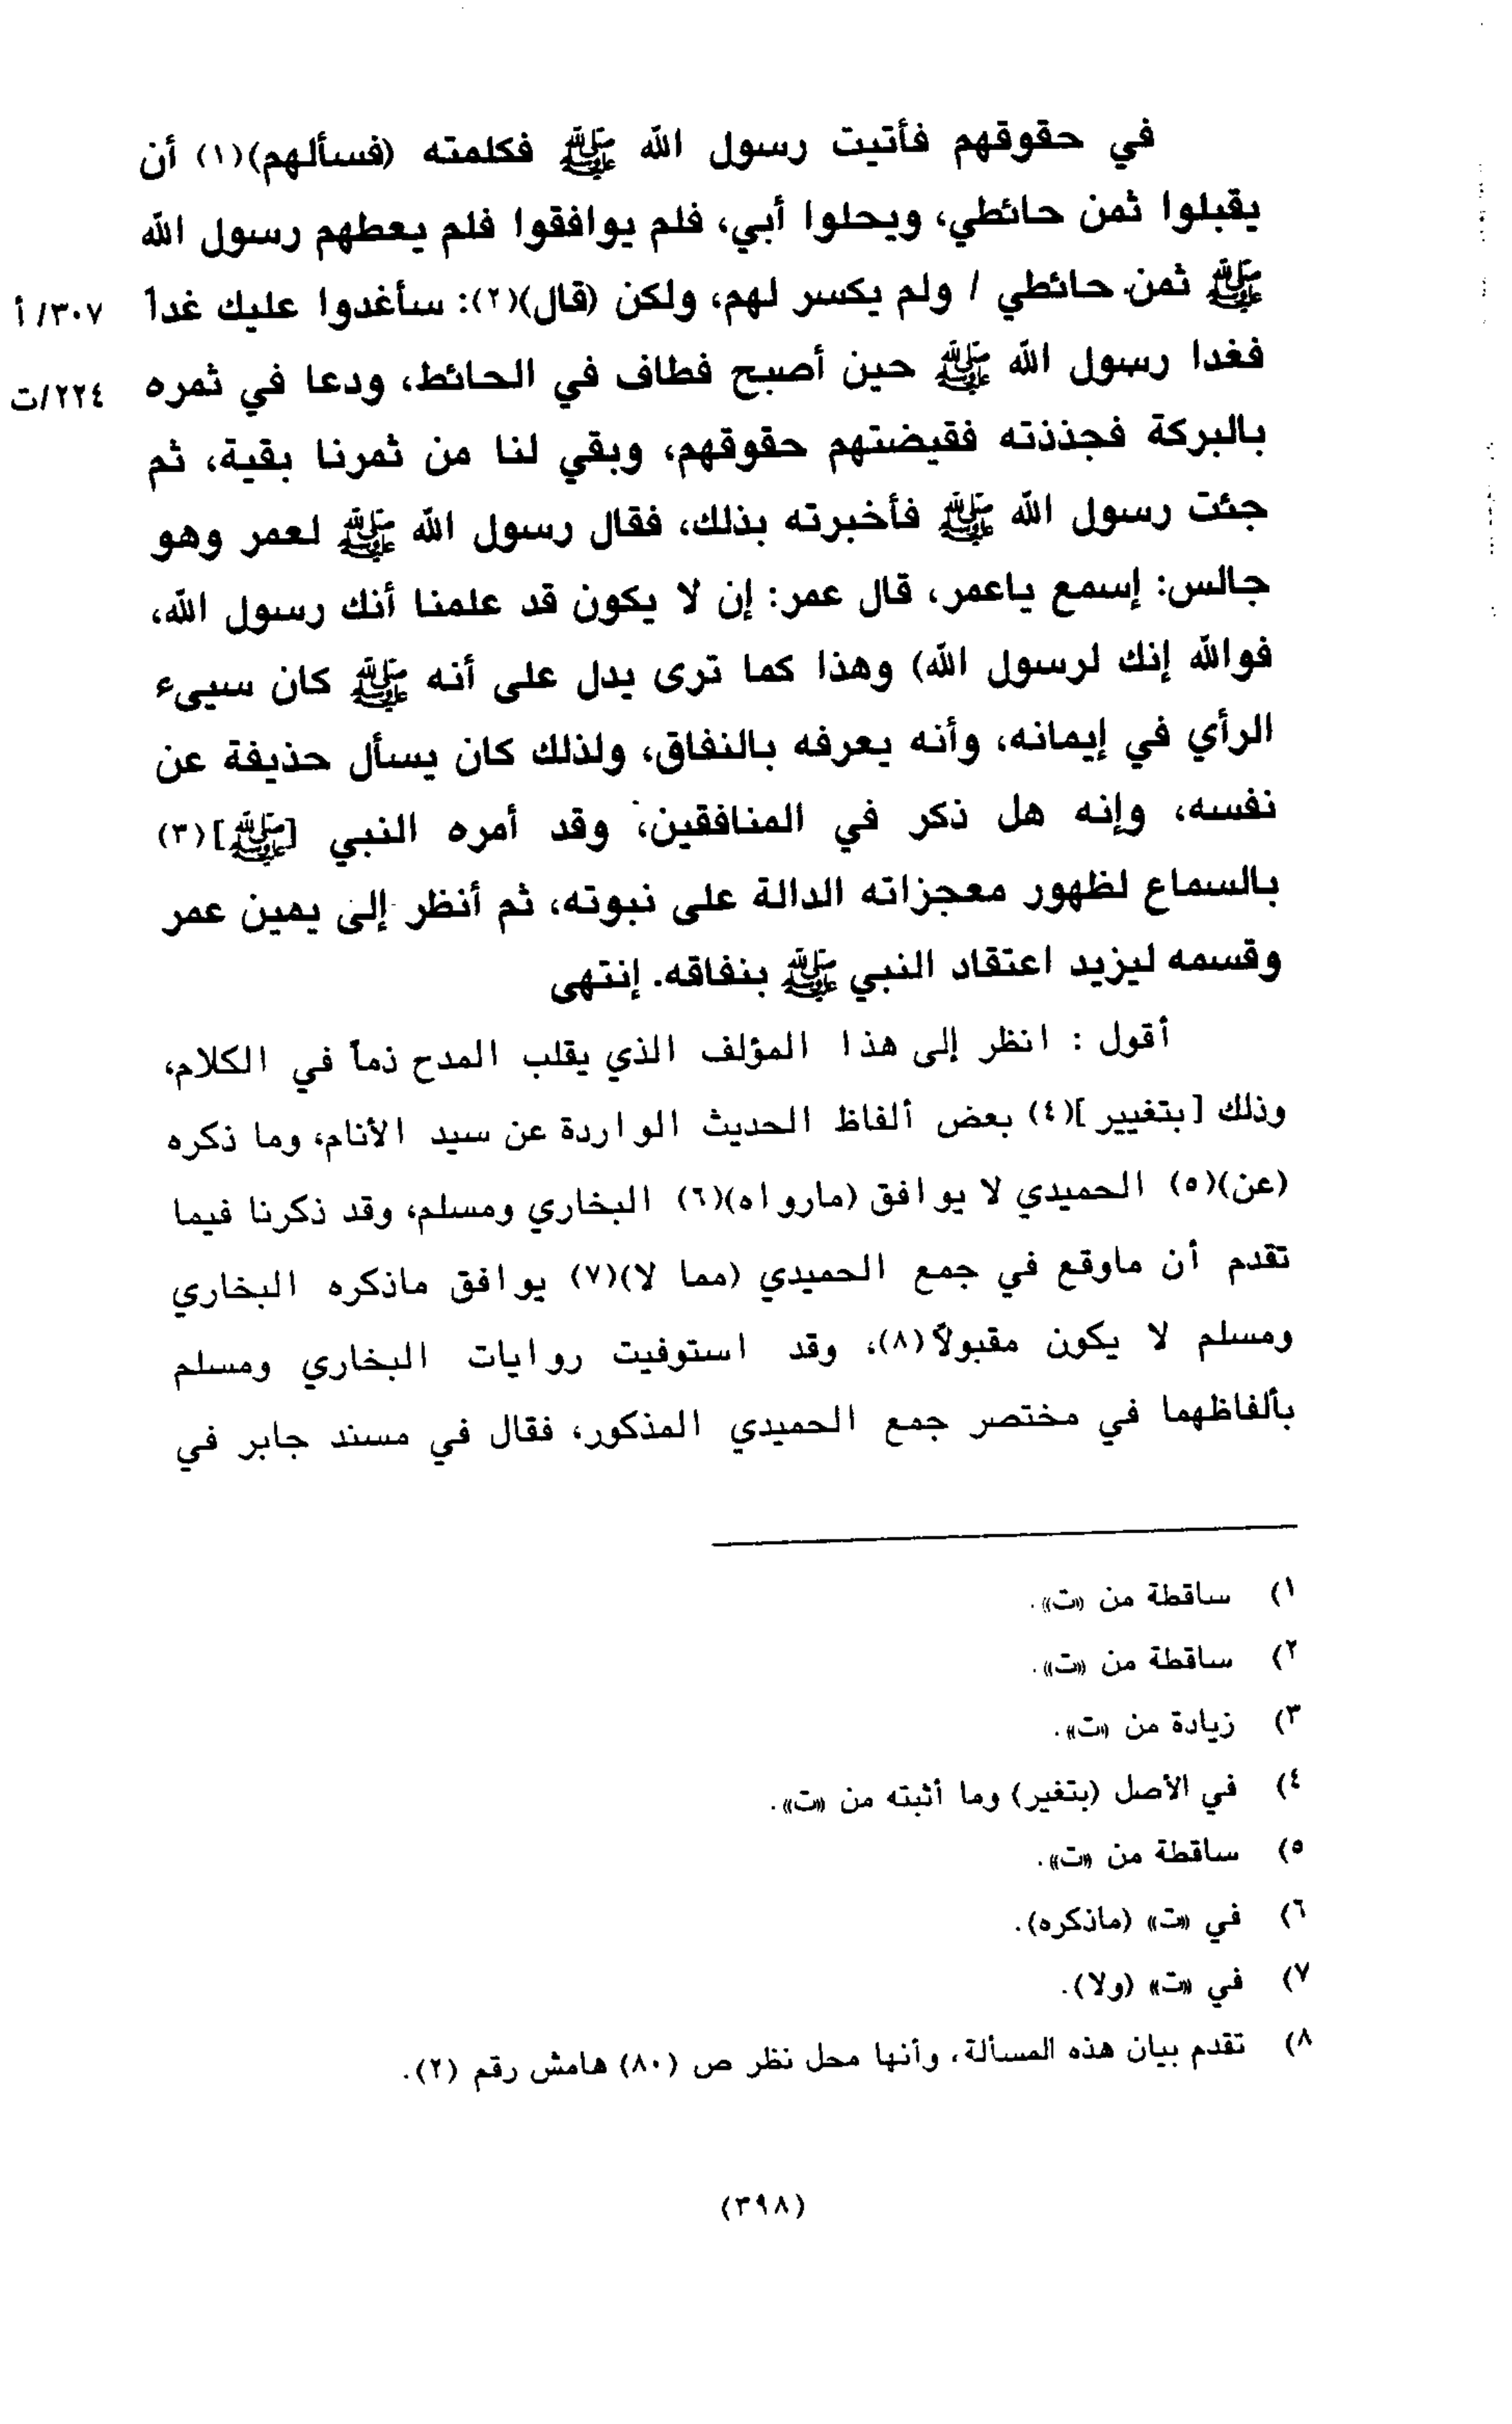 في حقوقهم فأتيت رسول الله ﷺ فكلمته (فسألهم)(١) أن
يقبلوا ثمن حائطي، ويحلوا أبي، فلم يوافقوا فلم يعطهم رسول الله
ﷺ ثمن حائطي / ولم يكسر لهم، ولكن (قال)(٢): سأغدوا عليك غداً ٣٠٧/ أ
فغدا رسول الله ﷺ حين أصبح فطاف في الحائط، ودعا في ثمره ٢٢٤/ت
بالبركة فجذذته فقيضتهم حقوقهم، وبقي لنا من ثمرنا بقية، ثم
جئت رسول الله ﷺ فأخبرته بذلك، فقال رسول الله ﷺ لعمر وهو
جالس: إسمع ياعمر، قال عمر: إن لا يكون قد علمنا أنك رسول الله،
فوالله إنك لرسول الله) وهذا كما ترى يدل على أنه ﷺ كان سيىء
الرأي في إيمانه، وأنه يعرفه بالنفاق، ولذلك كان يسأل حذيفة عن
نفسه، وإنه هل ذكر في المنافقين، وقد أمره النبي [ﷺ](٣)
بالسماع لظهور معجزاته الدالة على نبوته، ثم أنظر إلى يمين عمر
وقسمه ليزيد اعتقاد النبي ﷺ بنفاقه. إنتهى
أقول : انظر إلى هذا المؤلف الذي يقلب المدح ذماً في الكلام،
وذلك [بتغيير](٤) بعض ألفاظ الحديث الواردة عن سيد الأنام، وما ذكره
(عن)(٥) الحميدي لا يوافق (مارواه)(٦) البخاري ومسلم، وقد ذكرنا فيما
تقدم أن ماوقع في جمع الحميدي (مما لا)(٧) يوافق ماذكره البخاري
ومسلم لا يكون مقبولاً(٨)، وقد استوفيت روايات البخاري ومسلم
بألفاظهما في مختصر جمع الحميدي المذكور، فقال في مسند جابر في
١) ساقطة من «ت».
٢) ساقطة من «ت».
٣) زيادة من «ت».
٤) في الأصل (بتغير) وما أثبته من «ت».
٥) ساقطة من «ت».
٦) في «ت» (ماذكره).
٧) في «ت» (ولا).
٨) تقدم بيان هذه المسألة، وأنها محل نظر ص (٨٠) هامش رقم (٢).
(٣٩٨)